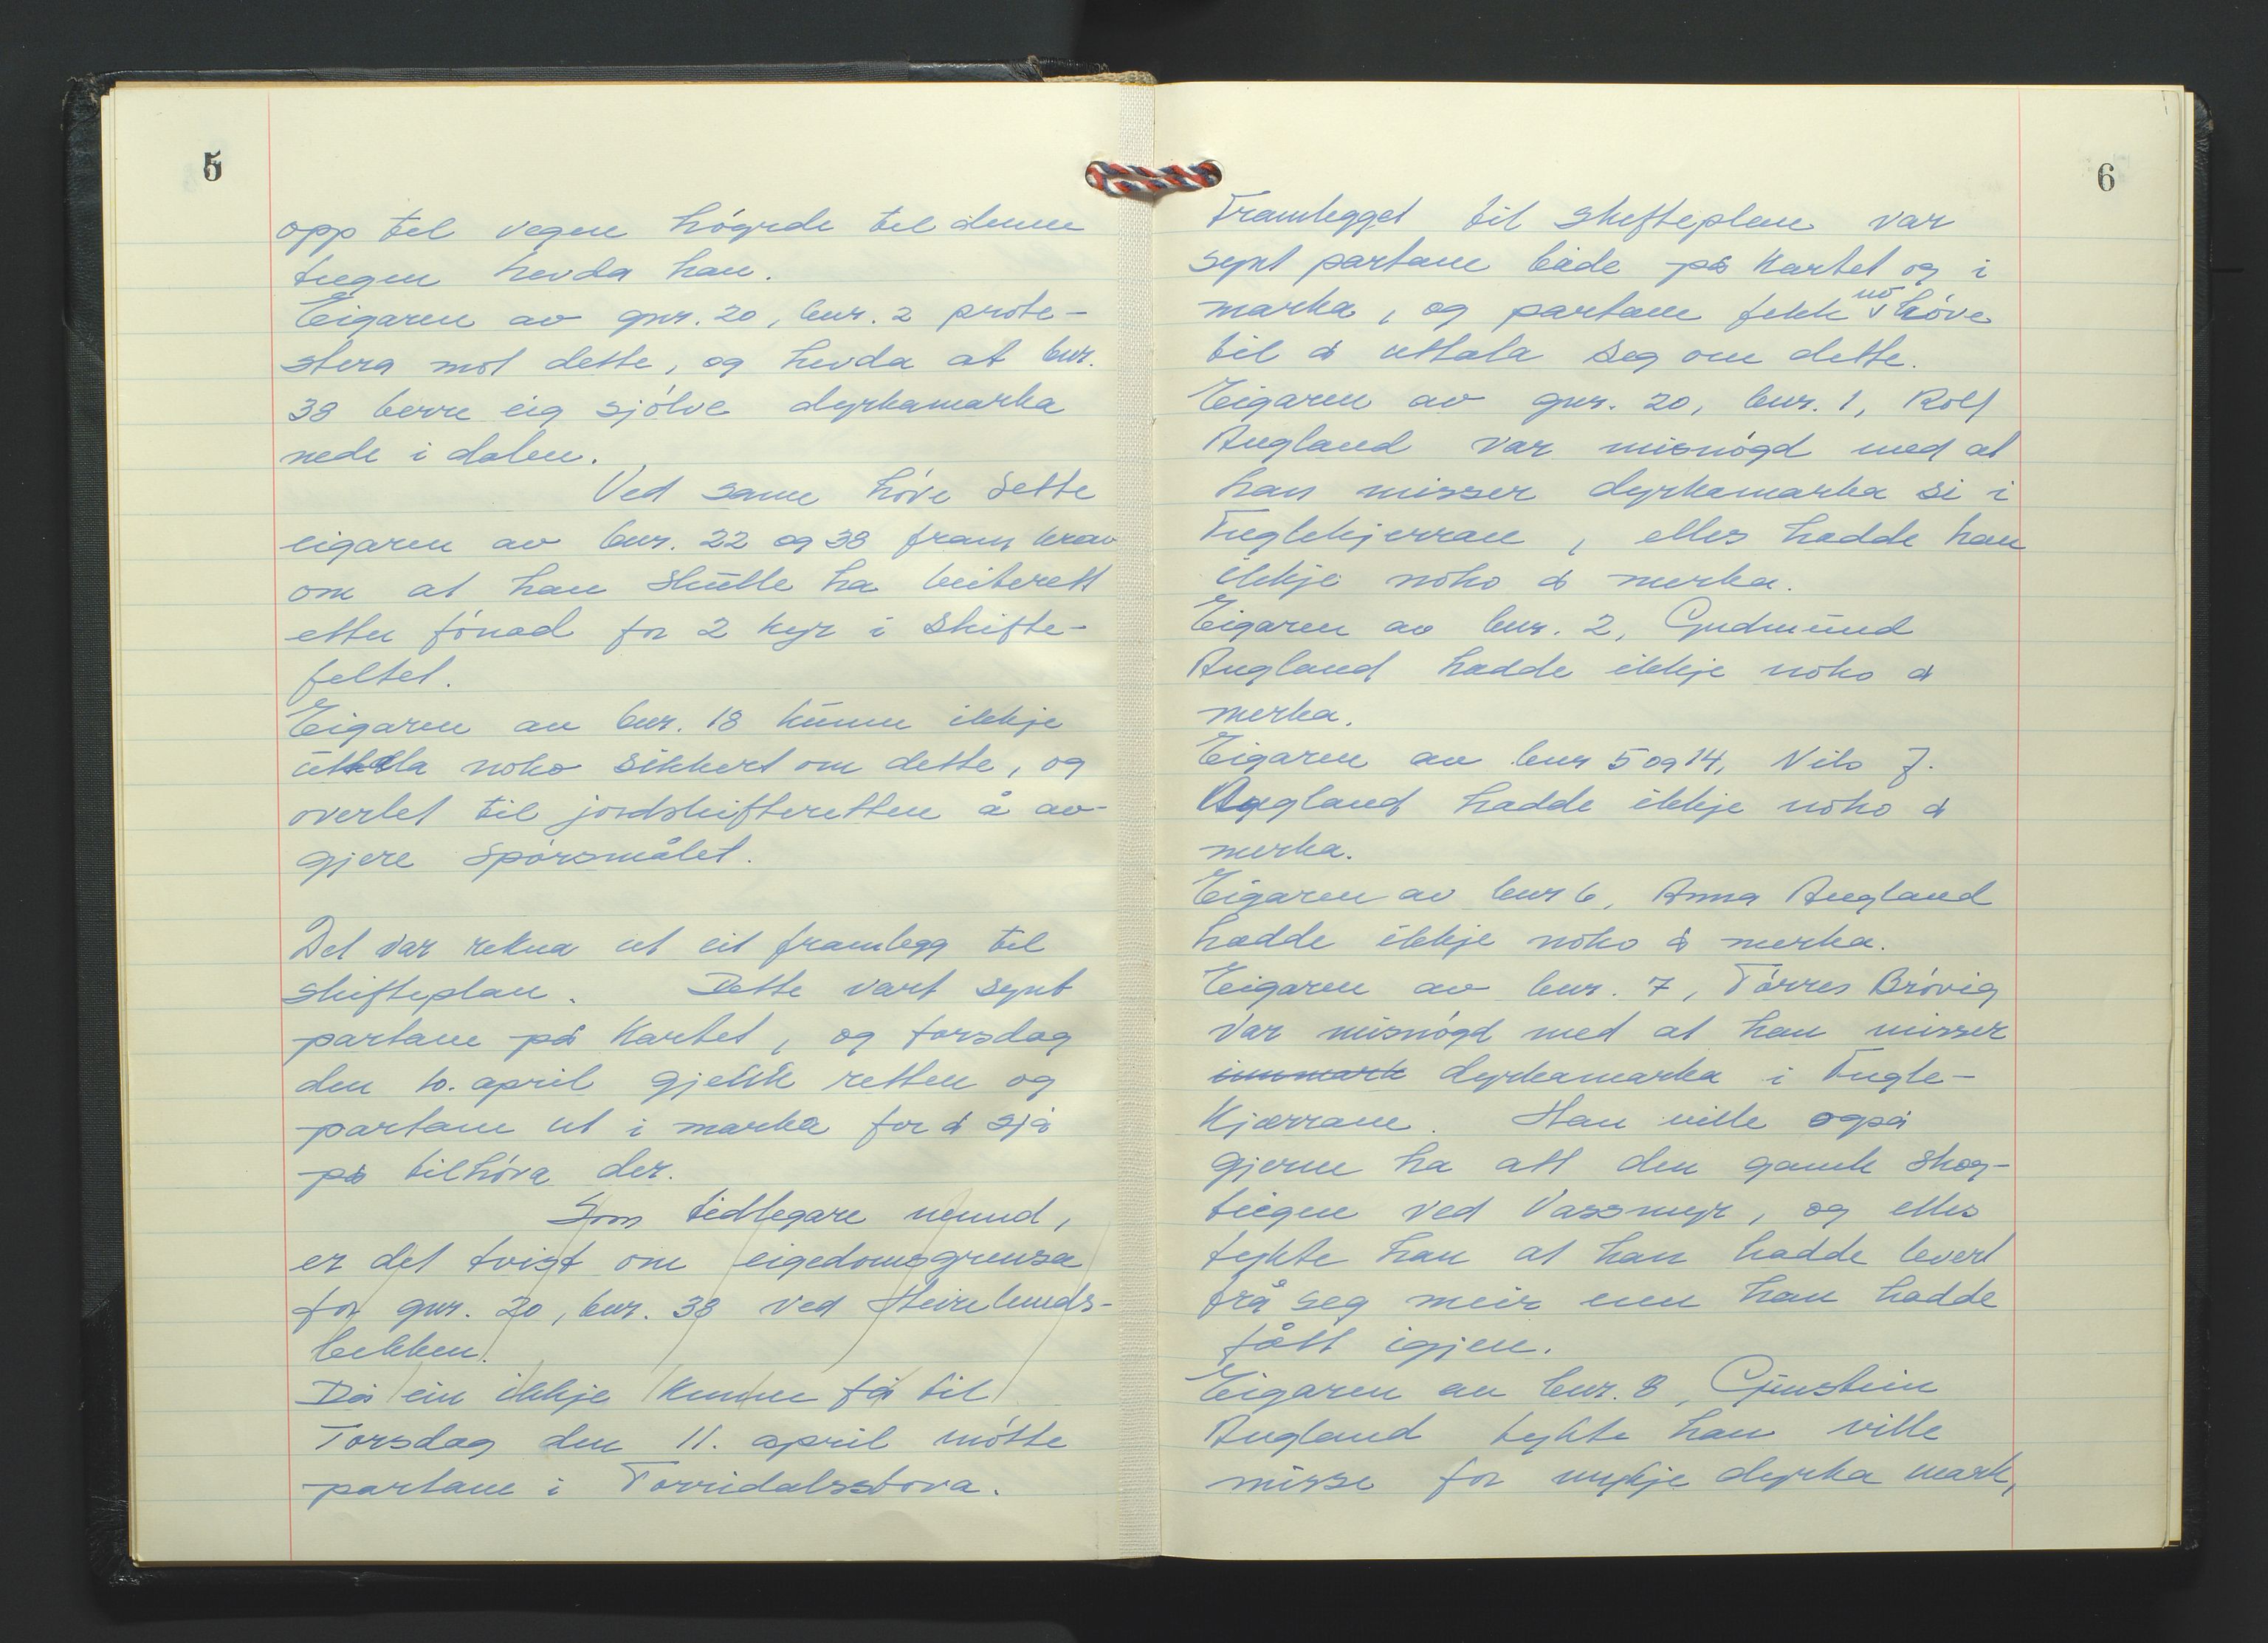 5
opp til vegen høgrde til denne
tiegen hevda han.
Eigaren av gnr. 20, bnr. 2 prote-
stera mot dette, og hevda at bnr.
38 berre eig sjølve dyrkamarka
nede i dalen.
Ved same høve sette
eigaren av bnr. 22 og 38 fram krav
om at han skulle ha beiterett
etter fønad for 2 kyr i skifte-
feltet.
Eigaren av bnr. 18 kunne ikkje
uttala noko sikkert om dette, og
overlet til jordskifteretten å av-
gjere spørsmålet.
Det var rekna ut eit framlegg til
skifteplan. Dette vart synt
partane på kartet, og torsdag
den 10. april gjekk retten og
partane ut i marka for å sjå
på tilhøva der.
Som tidlegare nemnd,
er det tvist om eigedomsgrensa
for gnr. 20, bnr. 38 ved
bekken.
Då ein ikkje kunne få til
Torsdag den 11. april møtte
partane i Torridalsstova.
6
Framlegget til skifteplan var
synt partane både på kartet og i
marka, og partane fekk no høve
til å uttala seg om dette.
Eigaren av gnr. 20, bnr. 1, Rolf
Augland var misnøgd med at
han misser dyrkamarka si i
Fuglekjerrane, elles hadde han
ikkje noko å merka.
Eigaren av bnr. 2, Gudmund
Augland hadde ikkje noko å
merka.
Eigaren av bnr 5 og 14, Nils J.
Augland hadde ikkje noko å
merka.
Eigaren av bnr 6, Anna Augland
hadde ikkje noko å merka.
Eigaren av bnr. 7, Tørres Brøvig
var misnøgd med at han misser
innmark dyrkamarka i Fugle-
kjærrane. Han ville også
gjerne ha att den gamle skog-
tiegen ved Vassmyr, og elles
tykte han at han hadde levert
frå seg meir enn han hadde
fått igjen.
Eigaren av bnr. 8, Gunstein
Augland tykte han ville
misse for mykje dyrka mark,